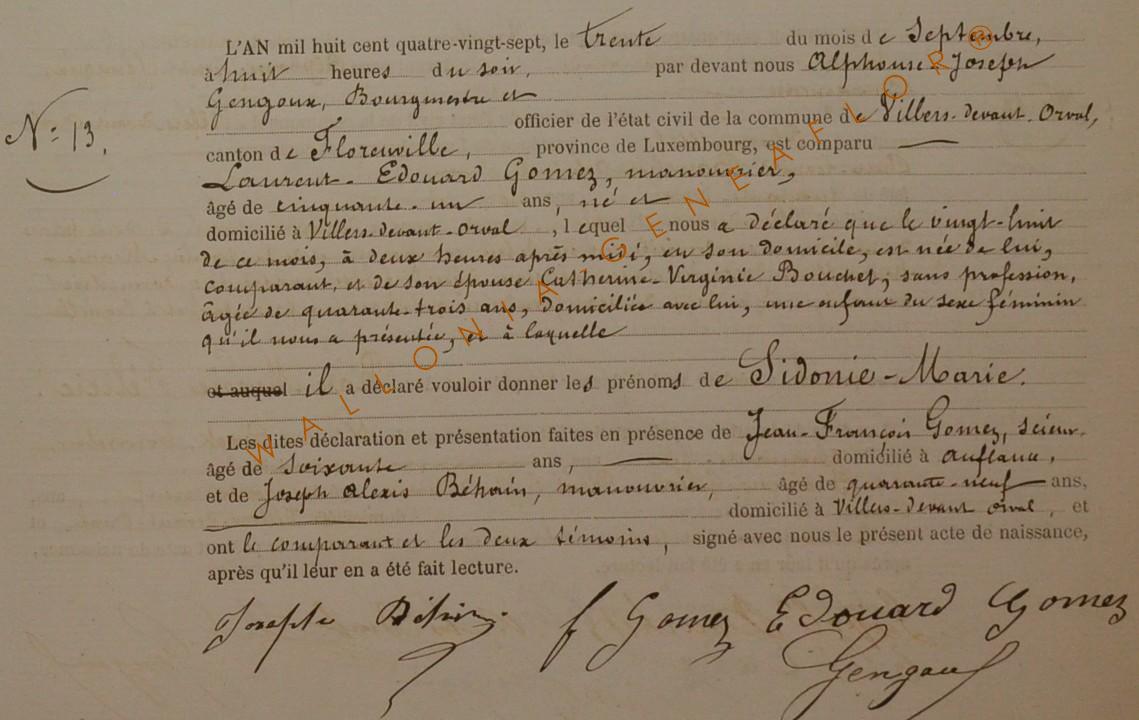 L'AN mil huit cent quatre-vingt-sept, le trente du mois de Septembre,
à huit heures du soir, par devant nous Alphonse Joseph
Gengoux, Bourgmestre et
officier de l'état civil de la commune de Villers-devant-Orval,
N° 13.
canton de Florenville, province de Luxembourg, est comparu
Laurent-Edouard Gomez, manouvrier,
âgé de cinquante-un ans, né et
domicilié à Villers-devant-Orval, lequel nous a déclaré que le vingt-huit
de ce mois, à deux heures après midi, en son domicile, est née de lui,
comparant, et de son épouse Catherine-Virginie Bouchet, sans profession,
âgée de quarante-trois ans, domiciliée avec lui, une enfant du sexe féminin
qu'il nous a présentée, et à laquelle
et auquel il a déclaré vouloir donner les prénoms de Sidonie-Marie.
Les dites déclaration et présentation faites en présence de Jean-François Gomez, scieur
âgé de soixante ans, domicilié à
et de Joseph Alexis Béhain, manouvrier, âgé de quarante-neuf ans,
domicilié à Villers-devant orval, et
ont le comparant et les deux témoins, signé avec nous le présent acte de naissance,
après qu'il leur en a été fait lecture.
Joseph f Gomez Edouard Gomez
Gengoux
WALLONIA-GENEAFLOR®